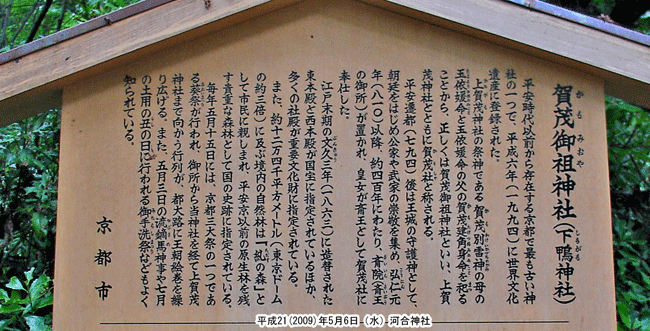 賀茂御祖神社(下鴨神社)
かもみおや
しもがも
平安時代以前から存在する京都で最も古い神
社の一つで、平成六年(一九九四)に世界文化
遺産に登録された。
上賀茂神社の祭神である賀茂別雷神の母の
玉依媛命と玉依媛命の父の賀茂建角身命を祀る
ことから、正しくは賀茂御祖神社といい、上賀
茂神社とともに賀茂社と称される。
平安遷都(七九四)後は王城の守護神として、
朝廷をはじめ公家や武家の崇敬を集め、弘仁元
年(八一〇)以降、約四百年にわたり、斎院(斎王
の御所)が置かれ、皇女が斎王として賀茂社に
奉仕した。
江戸末期の文久三年(一八六三)に造替された
東本殿と西本殿が国宝に指定されているほか、
多くの社殿が重要文化財に指定されている。
また、約十二万四千平方メートル(東京ドーム
の約三倍)に及ぶ境内の自然林は「糺の森」と
して市民に親しまれ、平安京以前の原生林を残
す貴重な森林として国の史跡に指定されている。
毎年五月十五日には、京都三大祭の一つであ
る葵祭が行われ、御所から当神社を経て上賀茂
神社まで向かう行列が、都大路に王朝絵巻を繰
り広げる。また、五月三日の流鏑馬神事や七月
の土用の丑の日に行われる御手洗祭などもよく
知られている。
京都市
平成21(2009)年5月6日(水) 河合神社